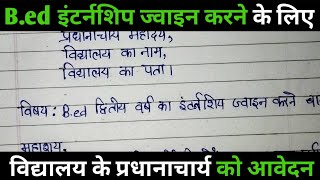 B.ed इंटर्नशिप ज्वाइन करने के लिए
प्रधानाचार्य महोदय,
विद्यालय का नाम,
विद्यालय का पता।
विषय: B.ed द्वितीय वर्ष का इंटर्नशिप ज्वाइन करने
महाशय,
विद्यालय के प्रधानाचार्य को आवेदन